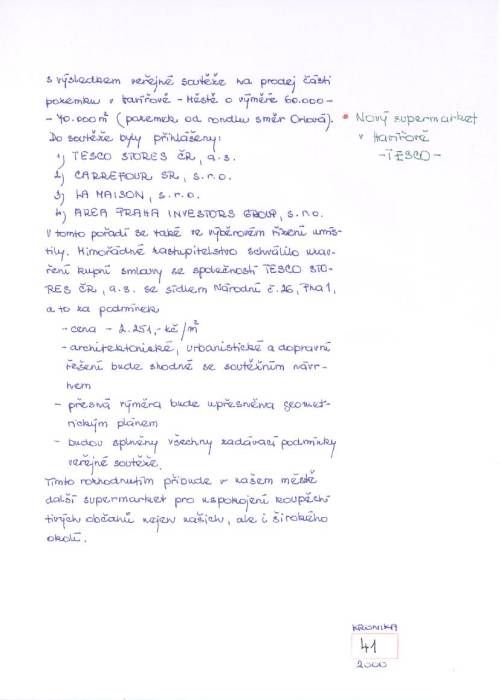 s výsledkem veřejné soutěže na prodej části
pozemku v Havířově - Městě o výměře 60.000-
- 70.000 m² (pozemek od rondlu směr Orlová).
• Nový supermarket
v Havířově
- TESCO -
Do soutěže byly přihlášeny:
1) TESCO STORES ČR, a.s.
2) CARREFOUR ČR, s.r.o.
3) LA MAISON, s.r.o.
4) AREA PRAHA INVESTORS GROUP, s.r.o.
V tomto pořadí se také ve výběrovém řízení umís-
tily. Mimořádné zastupitelstvo schválilo uzav-
ření kupní smlouvy se společností TESCO STO-
RES ČR, a.s. se sídlem Národní č.26, Pha 1,
a to za podmínek
- cena - 2.251,- kč/m²
- architektonické, urbanistické a dopravní
řešení bude shodné se soutěžním návr-
hem
- přesná výměra bude upřesněna geomet-
rickým plánem
- budou splněny všechny zadávací podmínky
veřejné soutěže.
Tímto rozhodnutím přibude v našem městě
další supermarket pro uspokojení koupěch-
tivých občanů nejen našich, ale i širokého
okolí.
KRONIKA
41
2000